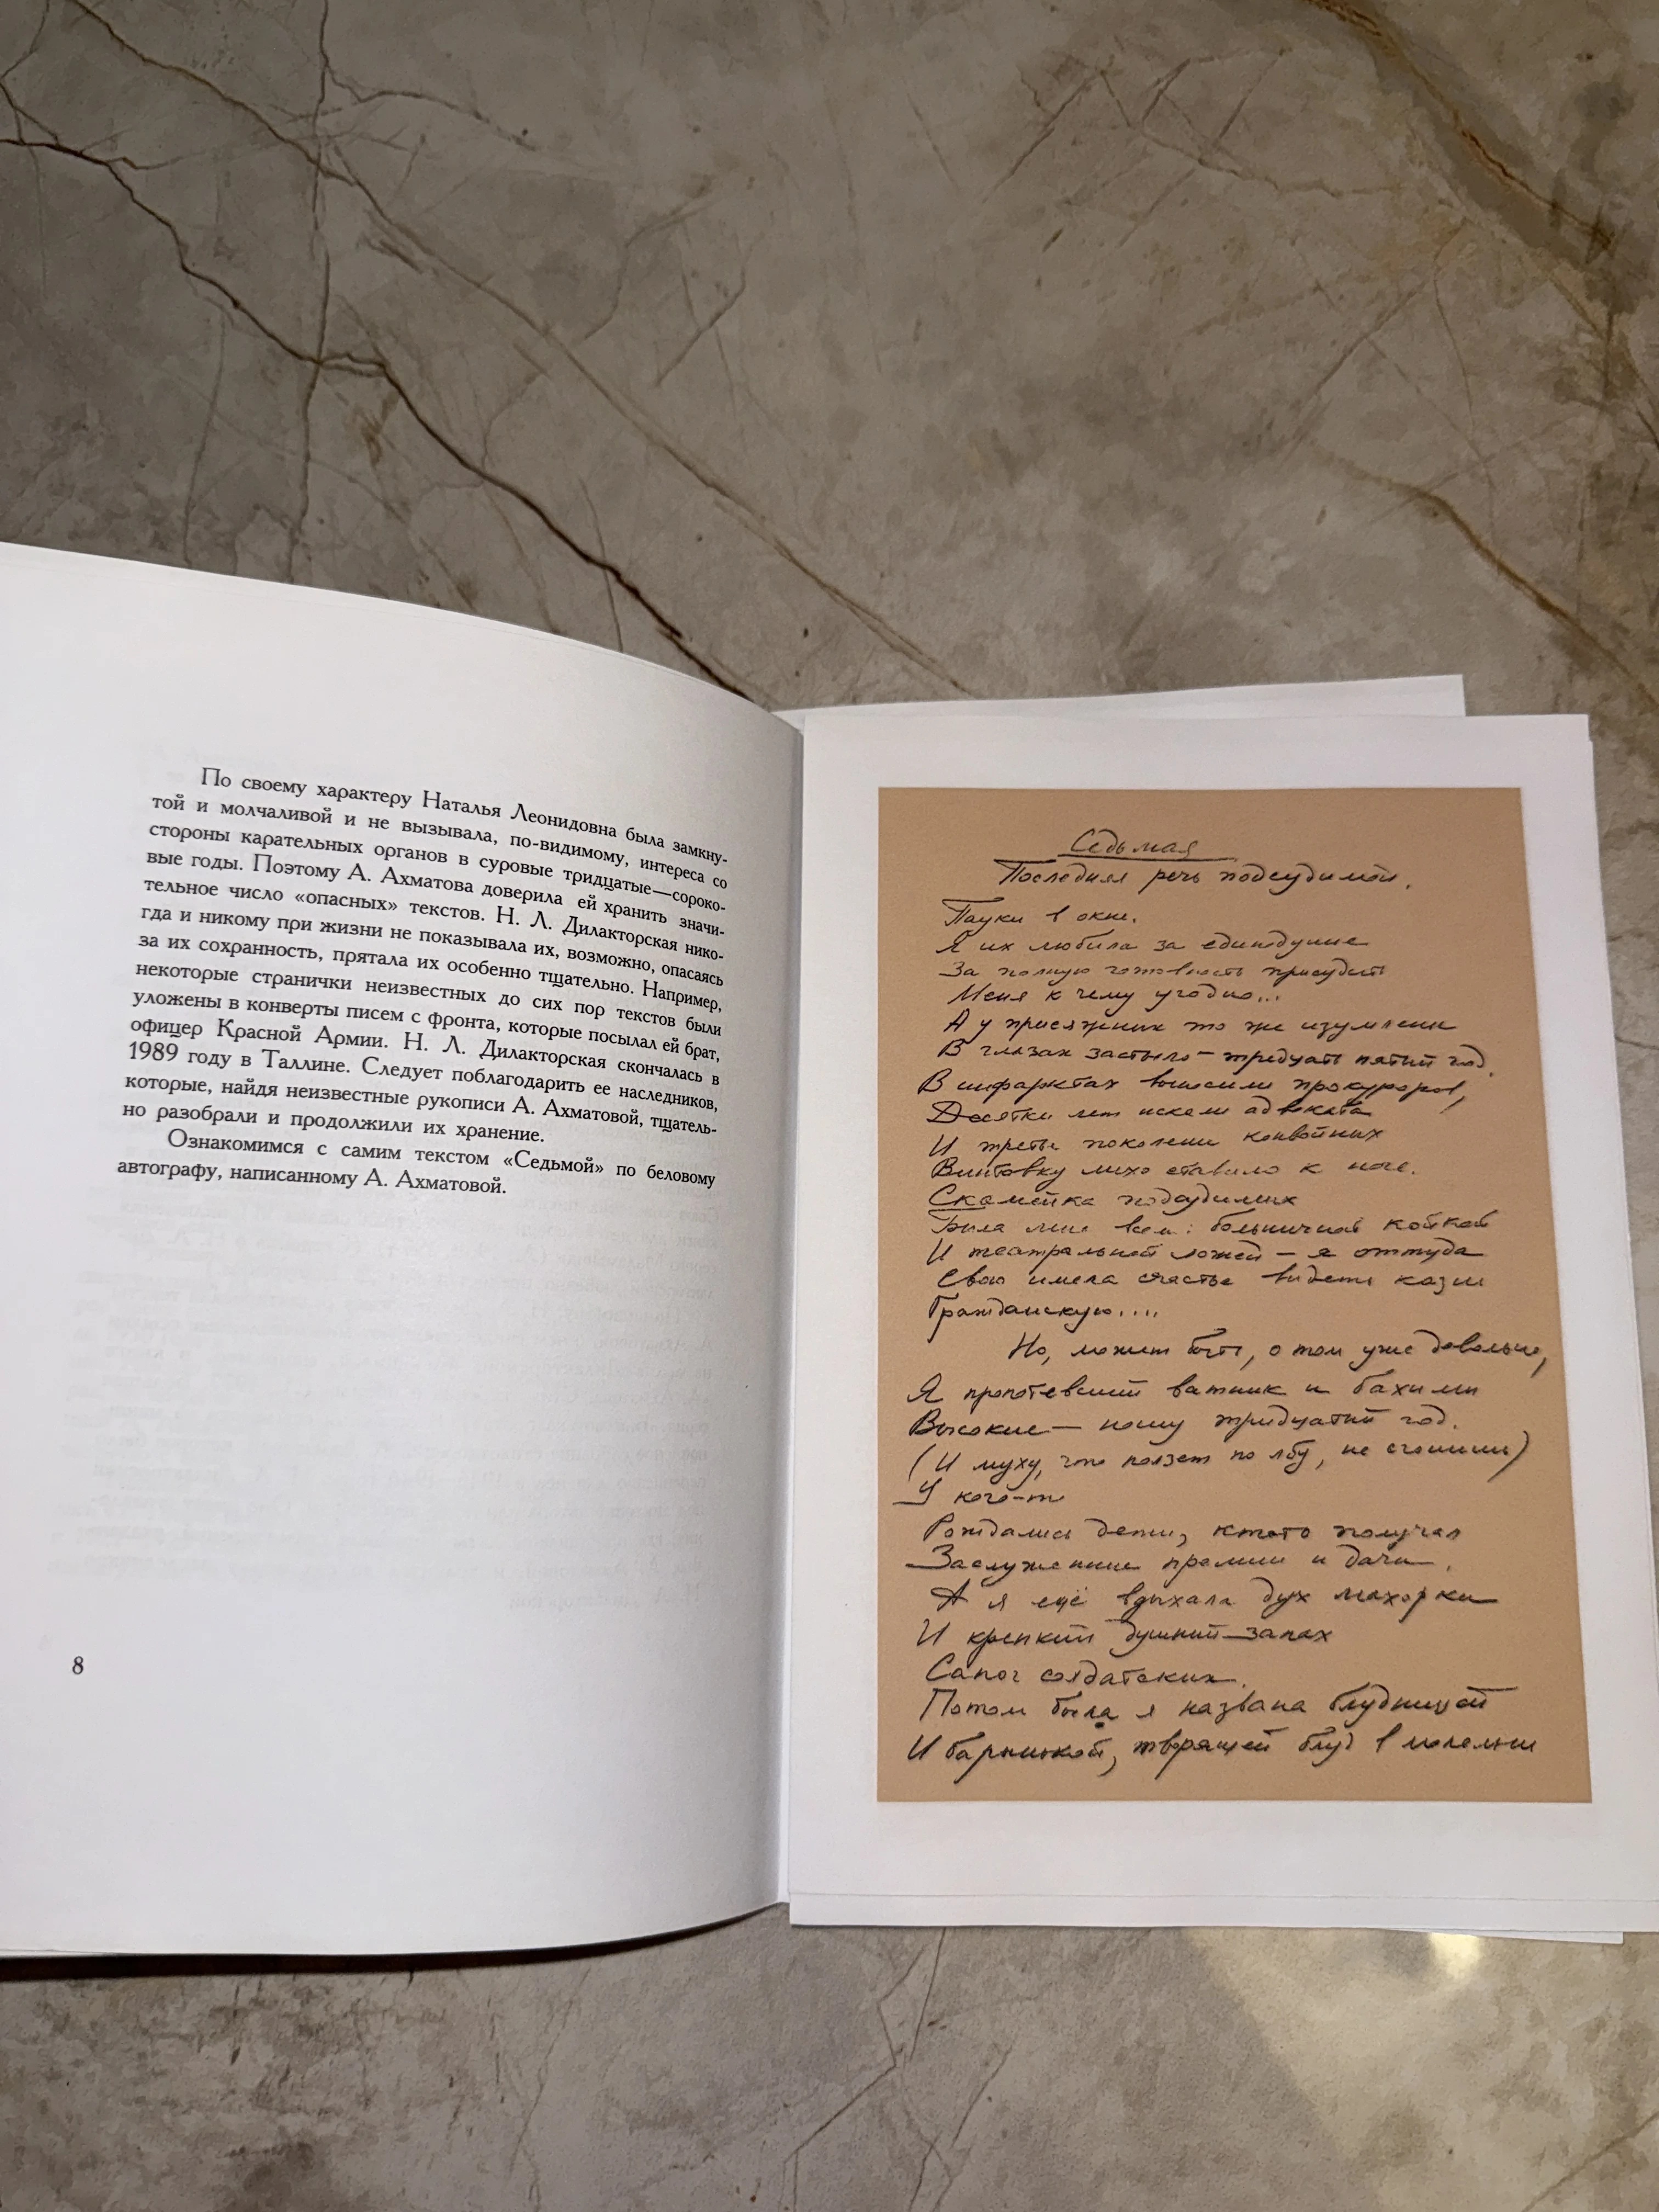 По своему характеру Наталья Леонидовна была замкну-
той и молчаливой и не вызывала, по-видимому, интереса со
стороны карательных органов в суровые тридцатые—сороко-
вые годы. Поэтому А. Ахматова доверила ей хранить значи-
тельное число «опасных» текстов. Н. Л. Дилакторская нико-
гда и никому при жизни не показывала их, возможно, опасаясь
за их сохранность, прятала их особенно тщательно. Например,
некоторые странички неизвестных до сих пор текстов были
уложены в конверты писем с фронта, которые посылал ей брат,
офицер Красной Армии. Н. Л. Дилакторская скончалась в
1989 году в Таллине. Следует поблагодарить ее наследников,
которые, найдя неизвестные рукописи А. Ахматовой, тщатель-
но разобрали и продолжили их хранение.
Ознакомимся с самим текстом «Седьмой» по беловому
автографу, написанному А. Ахматовой.
8
Седьмая
Последняя речь подсудимой.
Пауки в окне.
Я их любила за единодушие
За полную готовность присудить
Меня к чему угодно...
А у присяжных то же изумленье
В глазах застыло — тридцать пятый год.
В инфарктах выносили прокуроров,
Десятки лет искали адвоката
И третье поколение конвойных
Винтовку лихо ставило к ноге.
Скамейка подсудимых
Была мне всем: больничной койкой
И театральной ложей — я оттуда
Свою имела счастье видеть казнь
Гражданскую....
Но, может быть, о том уже довольно,
Я пропотевший ватник и бахилы
Высокие — ношу тридцатый год.
(И муху, что ползет по лбу, не сгоним)
У кого-то
Рождались дети, кто-то получал
Заслуженные премии и дачи.
А я ещё вдыхала дух махорки
И крепкий душный запах
Сапог солдатских.
Потом была я названа блудницей
И барынькой, творящей блуд в молельне